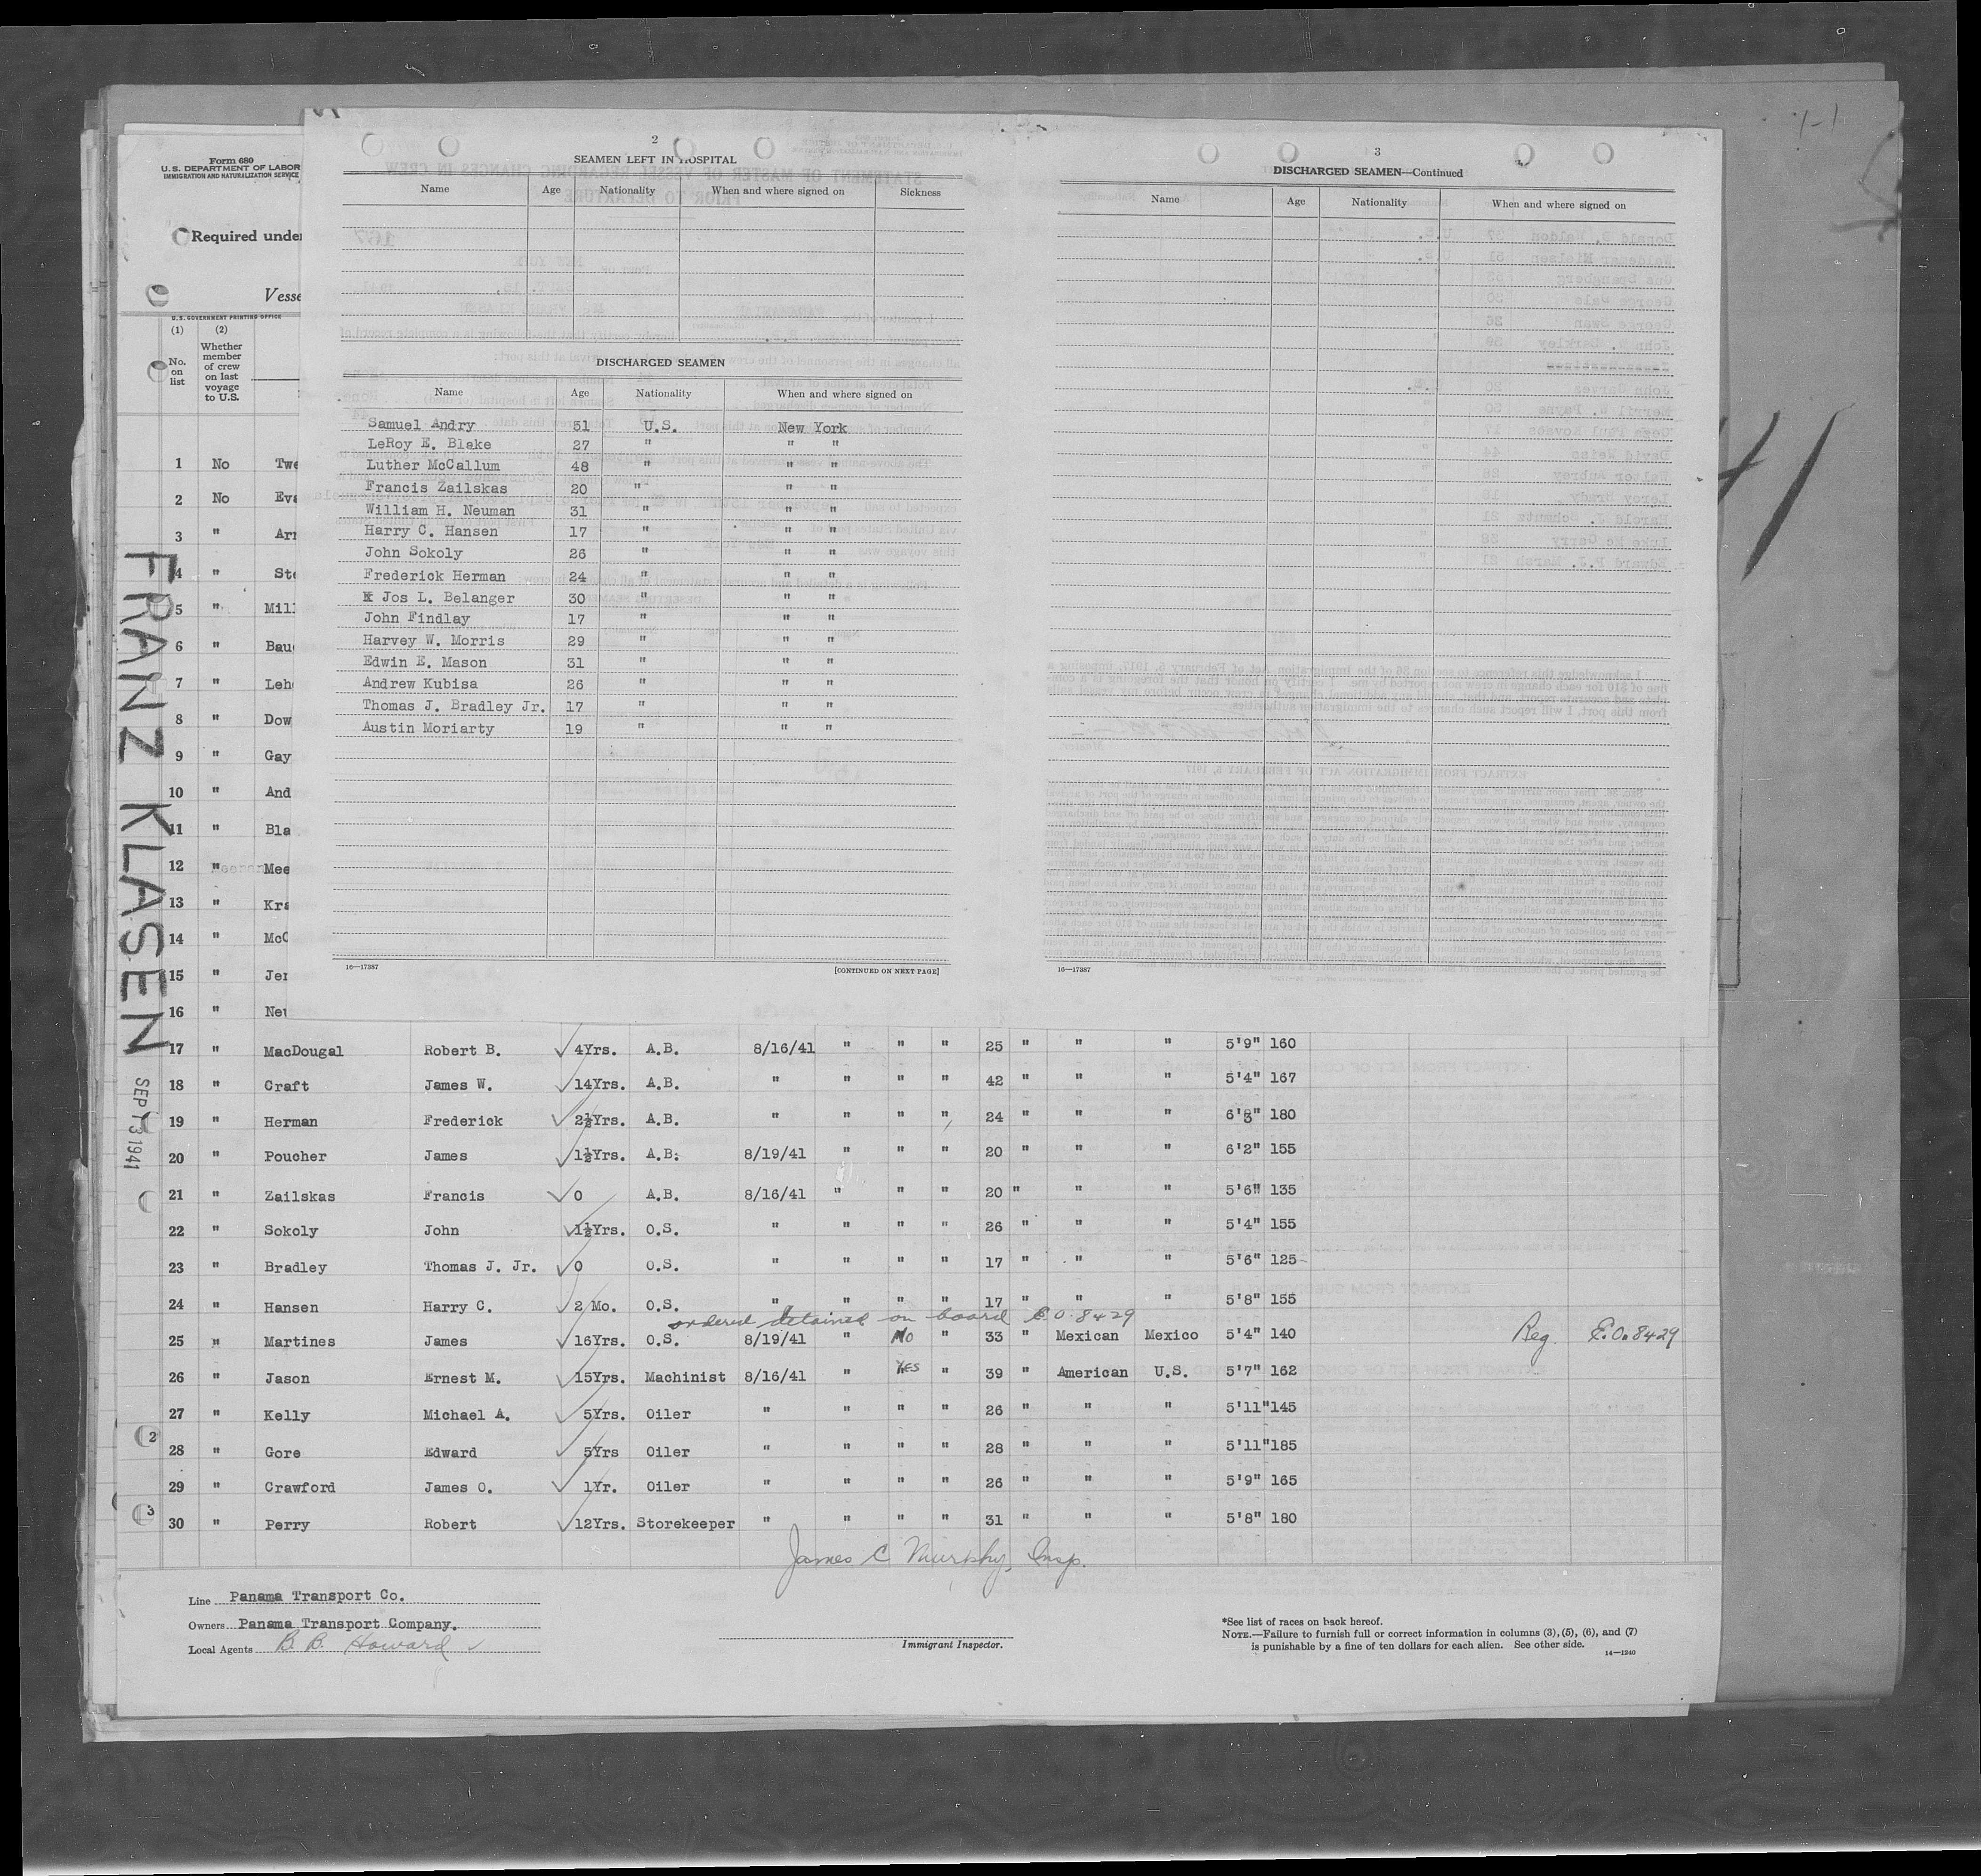 Form 680
U.S. DEPARTMENT OF LABOR
IMMIGRATION AND NATURALIZATION SERVICE
Required unde
Vesse
U.S. GOVERNMENT PRINTING OFFICE
(1) (2)
No. on list
Whether member of crew on last voyage to U.S.
1 No Twe
2 No Eva
3 " Arr
4 " Ste
5 " Mill
6 " Bau
7 " Leh
8 " Dow
9 " Gay
10 " And
11 " Bla
12 " Mee
13 " Kra
14 " McC
15 " Jer
16 " Neu
FRANZ KLASEN
SEP 13 1941
2
SEAMEN LEFT IN HOSPITAL
Name Age Nationality When and where signed on Sickness
DISCHARGED SEAMEN
Name Age Nationality When and where signed on
Samuel Andry 51 U.S. New York
LeRoy E. Blake 27 " " "
Luther McCallum 48 " " "
Francis Zailskas 20 " " "
William H. Neuman 31 " " "
Harry C. Hansen 17 " " "
John Sokoly 26 " " "
Frederick Herman 24 " " "
Jos L. Belanger 30 " " "
John Findlay 17 " " "
Harvey W. Morris 29 " " "
Edwin E. Mason 31 " " "
Andrew Kubisa 26 " " "
Thomas J. Bradley Jr. 17 " " "
Austin Moriarty 19 " " "
16—17387 [CONTINUED ON NEXT PAGE]
3
DISCHARGED SEAMEN—Continued
Name Age Nationality When and where signed on
16—17387
17 " MacDougal Robert B. 4Yrs. A.B. 8/16/41 " " " 25 " " " 5'9" 160
18 " Craft James W. 14Yrs. A.B. " " " " 42 " " " 5'4" 167
19 " Herman Frederick 2½Yrs. A.B. " " " " 24 " " " 6'3" 180
20 " Poucher James 1½Yrs. A.B. 8/19/41 " " " 20 " " " 6'2" 155
21 " Zailskas Francis 0 A.B. 8/16/41 " " " 20 " " " 5'6" 135
22 " Sokoly John 1½Yrs. O.S. " " " " 26 " " " 5'4" 155
23 " Bradley Thomas J. Jr. 0 O.S. " " " " 17 " " " 5'6" 125
24 " Hansen Harry C. 2 Mo. O.S. " " " " 17 " " " 5'8" 155
ordered detained on board E.O. 8429
25 " Martines James 16Yrs. O.S. 8/19/41 " No " 33 " Mexican Mexico 5'4" 140 Reg. E.O. 8429
26 " Jason Ernest M. 15Yrs. Machinist 8/16/41 " Yes " 39 " American U.S. 5'7" 162
27 " Kelly Michael A. 5Yrs. Oiler " " " " 26 " " " 5'11" 145
28 " Gore Edward 5Yrs Oiler " " " " 28 " " " 5'11" 185
29 " Crawford James O. 1Yr. Oiler " " " " 26 " " " 5'9" 165
30 " Perry Robert 12Yrs. Storekeeper " " " " 31 " " " 5'8" 180
James C Murphy, Insp.
Line Panama Transport Co.
Owners Panama Transport Company.
Local Agents B. B. Howard
Immigrant Inspector.
*See list of races on back hereof.
NOTE.—Failure to furnish full or correct information in columns (3), (5), (6), and (7)
is punishable by a fine of ten dollars for each alien. See other side.
14—1240
2
3